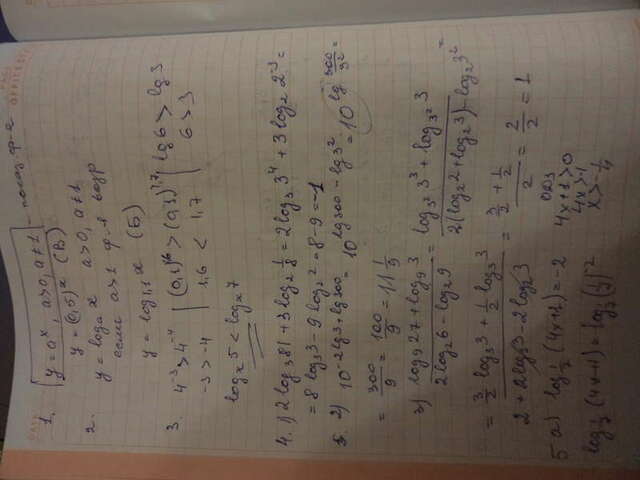 1. y = aˣ, a>0, a≠1 - показ ф-я
y = (0,5)ˣ (В)
2. y = logₐ x a>0, a≠1
если a>1 ф-я возр
y = log₁,₁ x (Б)
3. 4⁻³ > 4⁻⁴ | (0,3)¹,⁶ > (0,3)¹,⁷ | lg 6 > lg 3
-3 > -4 | 1,6 < 1,7 | 6 > 3
logₓ 5 < logₓ 7
4. 1) 2 log₃ 81 + 3 log₂ 1/8 = 2 log₃ 3⁴ + 3 log₂ 2⁻³ =
= 8 log₃ 3 - 9 log₂ 2 = 8 - 9 = -1
2) 10^(-2 lg 3 + lg 300) = 10^(lg 300 - lg 3²) = 10^(lg 300/3²) =
= 300/9 = 100/9 = 11 1/9
3) (log₉ 27 + log₉ 3)/(2 log₂ 6 - log₂ 9) = (log₃² 3³ + log₃² 3)/(2(log₂ 2 + log₂ 3) - log₂ 3²) =
= (3/2 log₃ 3 + 1/2 log₃ 3)/(2 + 2 log₂ 3 - 2 log₂ 3) = (3/2 + 1/2)/2 = 2/2 = 1
5 а) log 1/3 (4x+1) = -2 ОДЗ
4x+1 > 0
4x > -1
x > -1/4
log 1/3 (4x+1) = log 1/3 (1/3)⁻²